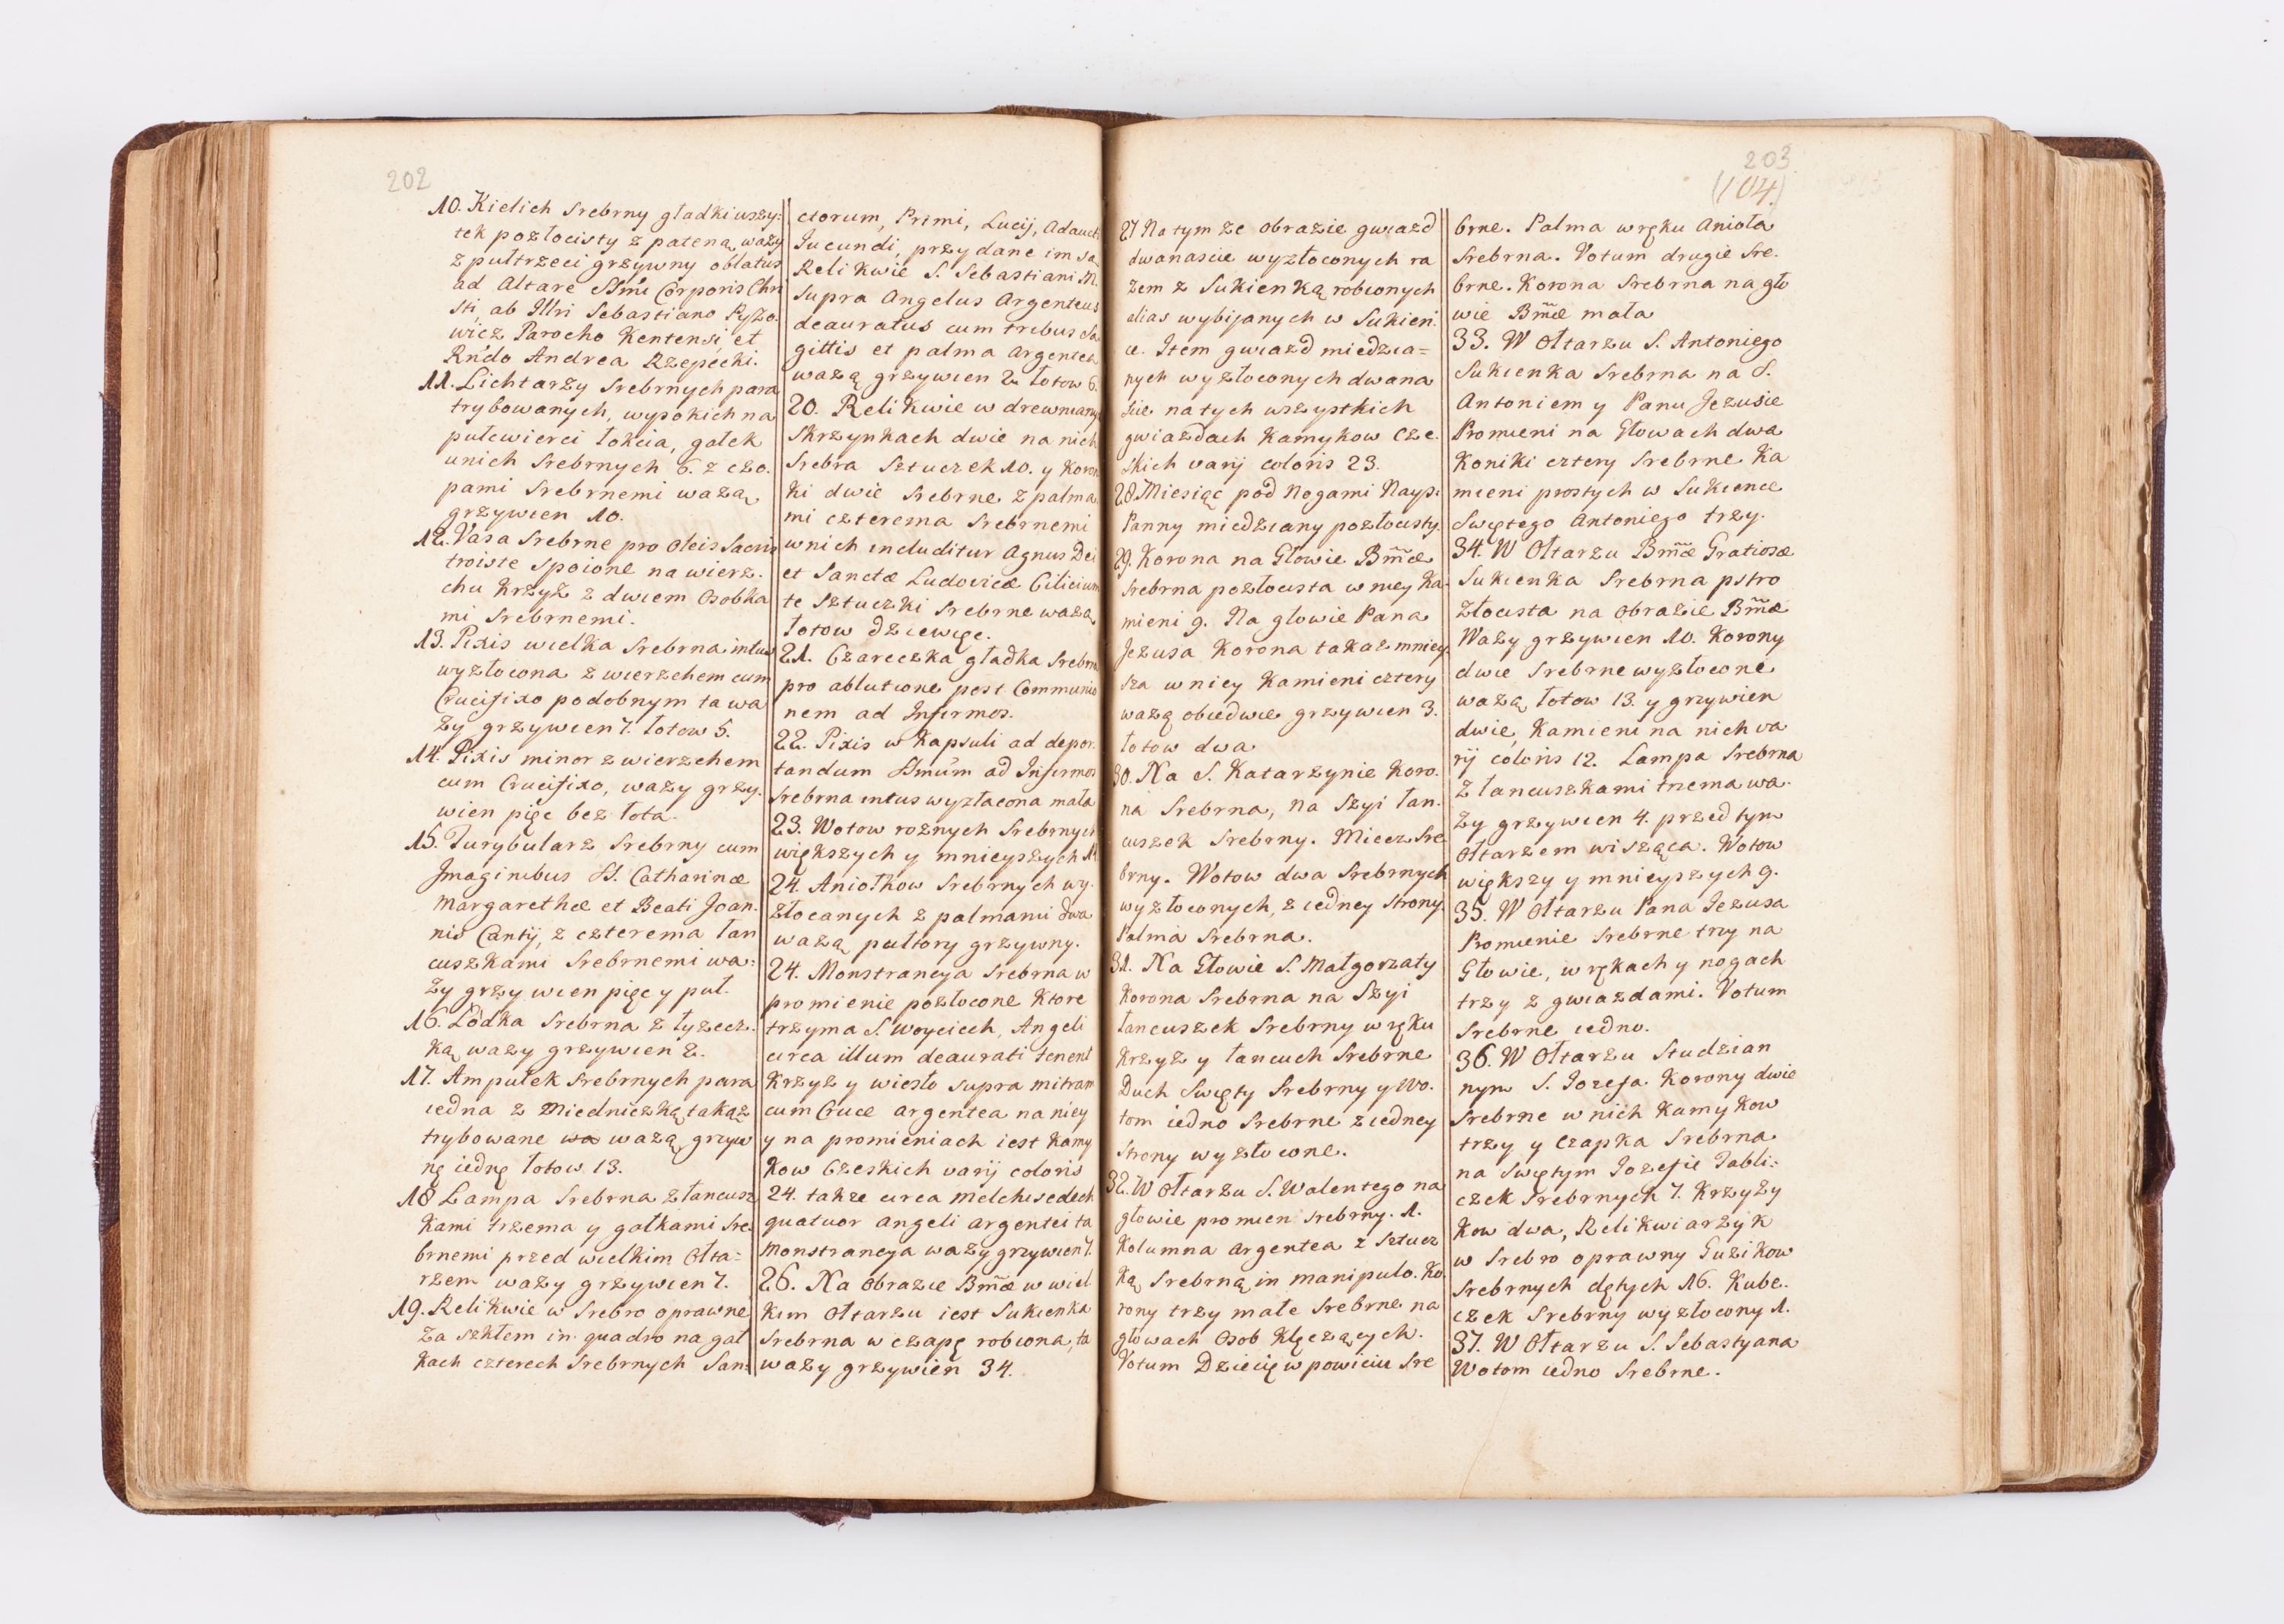 202
10. Kielich Srebrny gładki wszy:
tek pozłocisty z pateną, waży
z pułtrzeci grzywny oblatus
ad Altare SSmi Corporis Chri
sti, ab Illri Sebastiano Pyzo.
wicz Parocho Kentensi, et
Rndo Andrea Rzepecki.
11. Lichtarzy Srebrnych para
trybowanych, wysokich na
pułcwierci łokcia, gałek
unich Srebrnych 6. z czo.
pami Srebrnemi ważą
grzywien 10.
12. Vasa Srebrne pro Oleis Sacris
troiste spoione na wierz.
chu Krzyż z dwiem Osobka
mi Srebrnemi.
13. Pixis wielka Srebrna intus
wyzłocona z wierzchem cum
Crucifixo podobnym ta wa
ży grzywien 7. łotow 5.
14. Pixis minor z wierzchem
cum Crucifixo, waży grzy.
wien pięc bez łota.
15. Turybularz Srebrny cum
Imaginibus SS. Catharinæ
Margarethæ et Beati Joan.
nis Cantij, z czterema łan
cuszkami Srebrnemi wa:
ży grzywien pięc y puł.
16. Lodka Srebrna z łyzecz.
ką waży grzywien 2.
17. Ampułek Srebrnych para
iedna z Miedniczką takąż
trybowane wa ważą grzyw
nę iednę łotow 13.
18 Lampa Srebrna z łancusz
kami trzema y gałkami Sre.
brnemi przed wielkim Ołta=
rzem waży grzywien 7.
19. Relikwie w Srebro oprawne
Za szkłem in quadro na gał
kach czterech Srebrnych San:
ctorum, Primi, Lucij, Adauct
Jucundi, przydane im są
Relikwie S. Sebastiani M.
supra Angelus Argenteus
deauratus cum tribus Sa
gittis et palma argentea
ważą grzywien 2. łotow 6.
20. Relikwie w drewnianych
Skrzynkach dwie na nich
Srebra Sztuczek 10. y Koron
ki dwie Srebrne z palma
mi czterema Srebrnemi
wnich includitur Agnus Dei
et Sanctæ Ludovicæ Cilicium
te Sztuczki Srebrne ważą
łotow dziewięc.
21. Czareczka gładka Srebrn
pro ablutione post Communio
nem ad Infirmos.
22. Pixis w Kapsuli ad depor.
tandum SSmum ad Infirmos
Srebrna intus wyzłacona mała
23. Wotow roznych Srebrnych
większych y mnieyszych 14
24. Aniołkow Srebrnych wy.
złocanych z palmami dwa
ważą pułtory grzywny.
24. Monstrancya Srebrna w
promienie pozłocone ktore
trzyma S. Woyciech, Angeli
circa illum deaurati tenent
Krzyż y wiosło supra mitram
cum Cruce argentea na niey
y na promieniach iest kamy
kow Czeskich varij coloris
24. także circa Melchisedech
quatuor angeli argentei ta
Monstrancya waży grzywien 7.
26. Na Obrazie Bmæ w wiel
kim Ołtarzu iest Sukienka
Srebrna w czapę robiona, ta
waży grzywien 34.
203
(104.)
27 Na tym że obrazie gwiazd
dwanascie wyzłoconych ra
zem z Sukienką robionych
alias wybijanych w Sukien.
ce. Item gwiazd miedzia=
nych wyzłoconych dwana
scie na tych wszystkich
gwiazdach Kamykow Cze.
skich varij coloris 23.
28. Miesiąc pod Nogami Nayś:
Panny miedziany pozłocisty.
29. Korona na Głowie Bmæ
Srebrna pozłocista w niey Ka.
mieni 9. Na głowie Pana
Jezusa Korona takaż mniey
sza w niey Kamieni cztery
ważą obiedwie grzywien 3.
łotow dwa
30. Na S. Katarzynie Koro.
na Srebrna, na Szyi łan.
cuszek Srebrny. Miecz Sre
brny. Wotow dwa Srebrnych
wyzłoconych, z iedney Strony
Palma Srebrna.
31. Na Głowie S. Małgorzaty
Korona Srebrna na Szyi
łancuszek Srebrny w ręku
Krzyż y łancuch Srebrne
Duch Swięty Srebrny y Wo.
tom iedno Srebrne z iedney
Strony wyzłocone.
32. W Ołtarzu S. Walentego na
głowie promien srebrny. 1.
Kolumna argentea z Sztucz
ką Srebrną in manipulo. Ko.
rony trzy małe Srebrne na
głowach Osob Klęczących.
Votum Dziecię w powiciu Sre
brne. Palma w ręku Anioła
Srebrna. Votum drugie Sre.
brne. Korona Srebrna na gło
wie Bmæ mała
33. W Ołtarzu S. Antoniego
Sukienka Srebrna na S.
Antoniem y Panu Jezusie
Promieni na Głowach dwa
Koniki cztery Srebrne Ka
mieni prostych w Sukience
Swiętego Antoniego trzy.
34. W Ołtarzu Bmæ Gratiosæ
Sukienka Srebrna pstro
złocista na obrazie Bmæ
Waży grzywien 10. Korony
dwie Srebrne wyzłocone
ważą łotow 13. y grzywien
dwie, Kamieni na nich va
rij coloris 12. Lampa Srebrna
z łancuszkami trzema wa.
ży grzywien 4. przed tym
Ołtarzem wisząca. Wotow
większy y mnieyszych 9.
35. W Ołtarzu Pana Jezusa
Promienie Srebrne trzy na
Głowie, w rękach y nogach
trzy z gwiazdami. Votum
Srebrne iedno.
36. W Ołtarzu Studzian
nym S. Iozefa Korony dwie
Srebrne w nich Kamykow
trzy y Czapka Srebrna
na Swiętym Iozefie Tabli:
czek Srebrnych 7. Krzyży
kow dwa, Relikwiarzyk
w Srebro oprawny Guzikow
Srebrnych dętych 16. Kube.
czek Srebrny wyzłocony 1.
37. W Ołtarzu S. Sebastyana
Wotom iedno Srebrne.